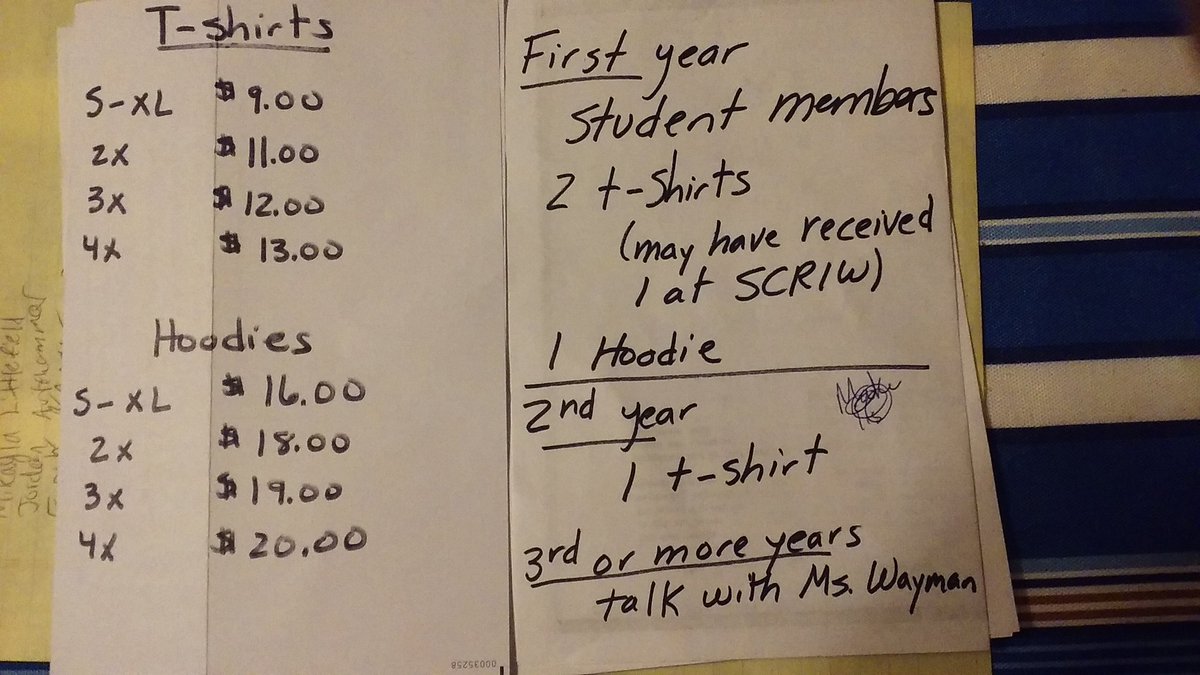 T-shirts
S-XL $ 9.00
2X $ 11.00
3X $ 12.00
4X $ 13.00
Hoodies
S-XL $ 16.00
2X $ 18.00
3X $ 19.00
4X $ 20.00
00035258
First year
student members
2 t-shirts
(may have received
1 at SCRIW)
1 Hoodie
2nd year
1 t-shirt
3rd or more years
talk with Ms. Wayman
Mikayla
Jordan